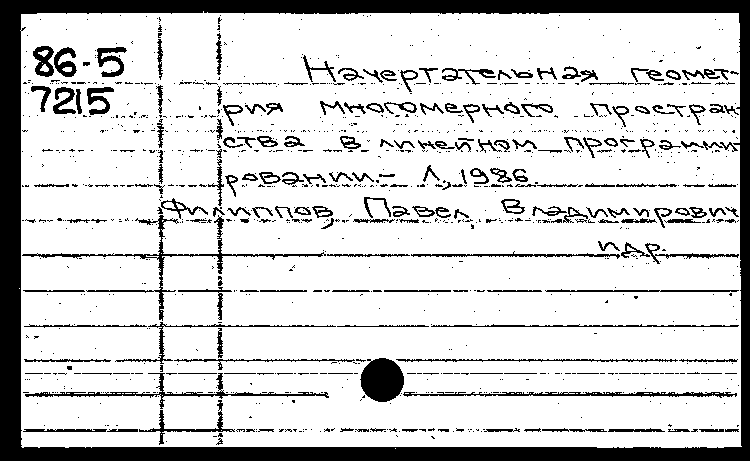 86-5
7215
Начертательная геомет-
рия многомерного простран-
ства в линейном программи-
ровании.- Л, 1986.
Филиппов, Павел Владимирович
и др.